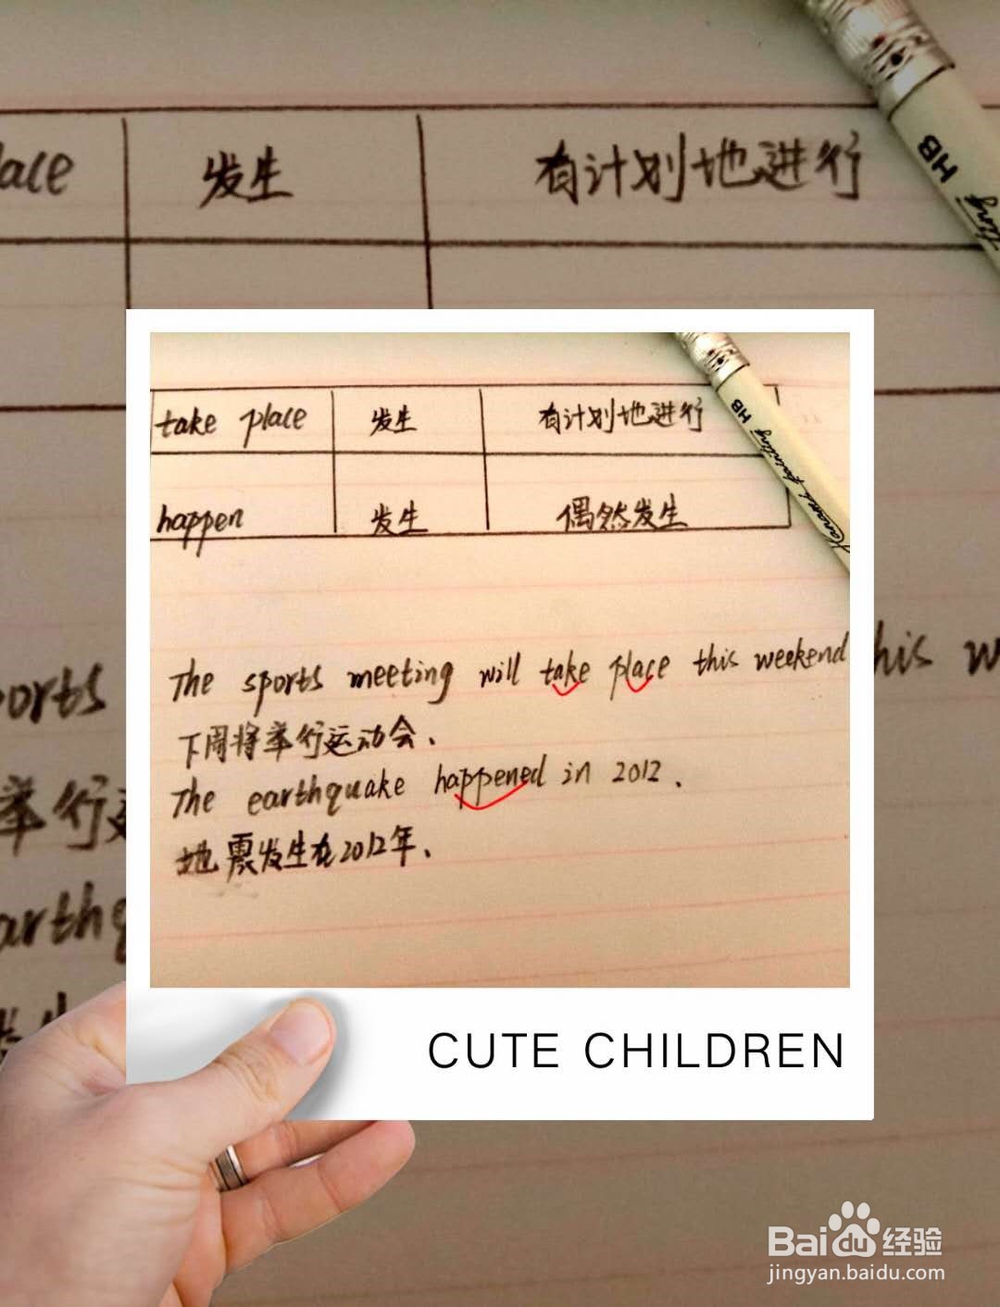 lace 发生 有计划地进行
HB
take place 发生 有计划地进行
happen 发生 偶然发生
HB
The sports meeting will take place this weekend
下周将举行运动会、
The earthquake happened in 2012.
地震发生在2012年、
orts
his w
举行运
arthq
CUTE CHILDREN
Baidu经验
jingyan.baidu.com